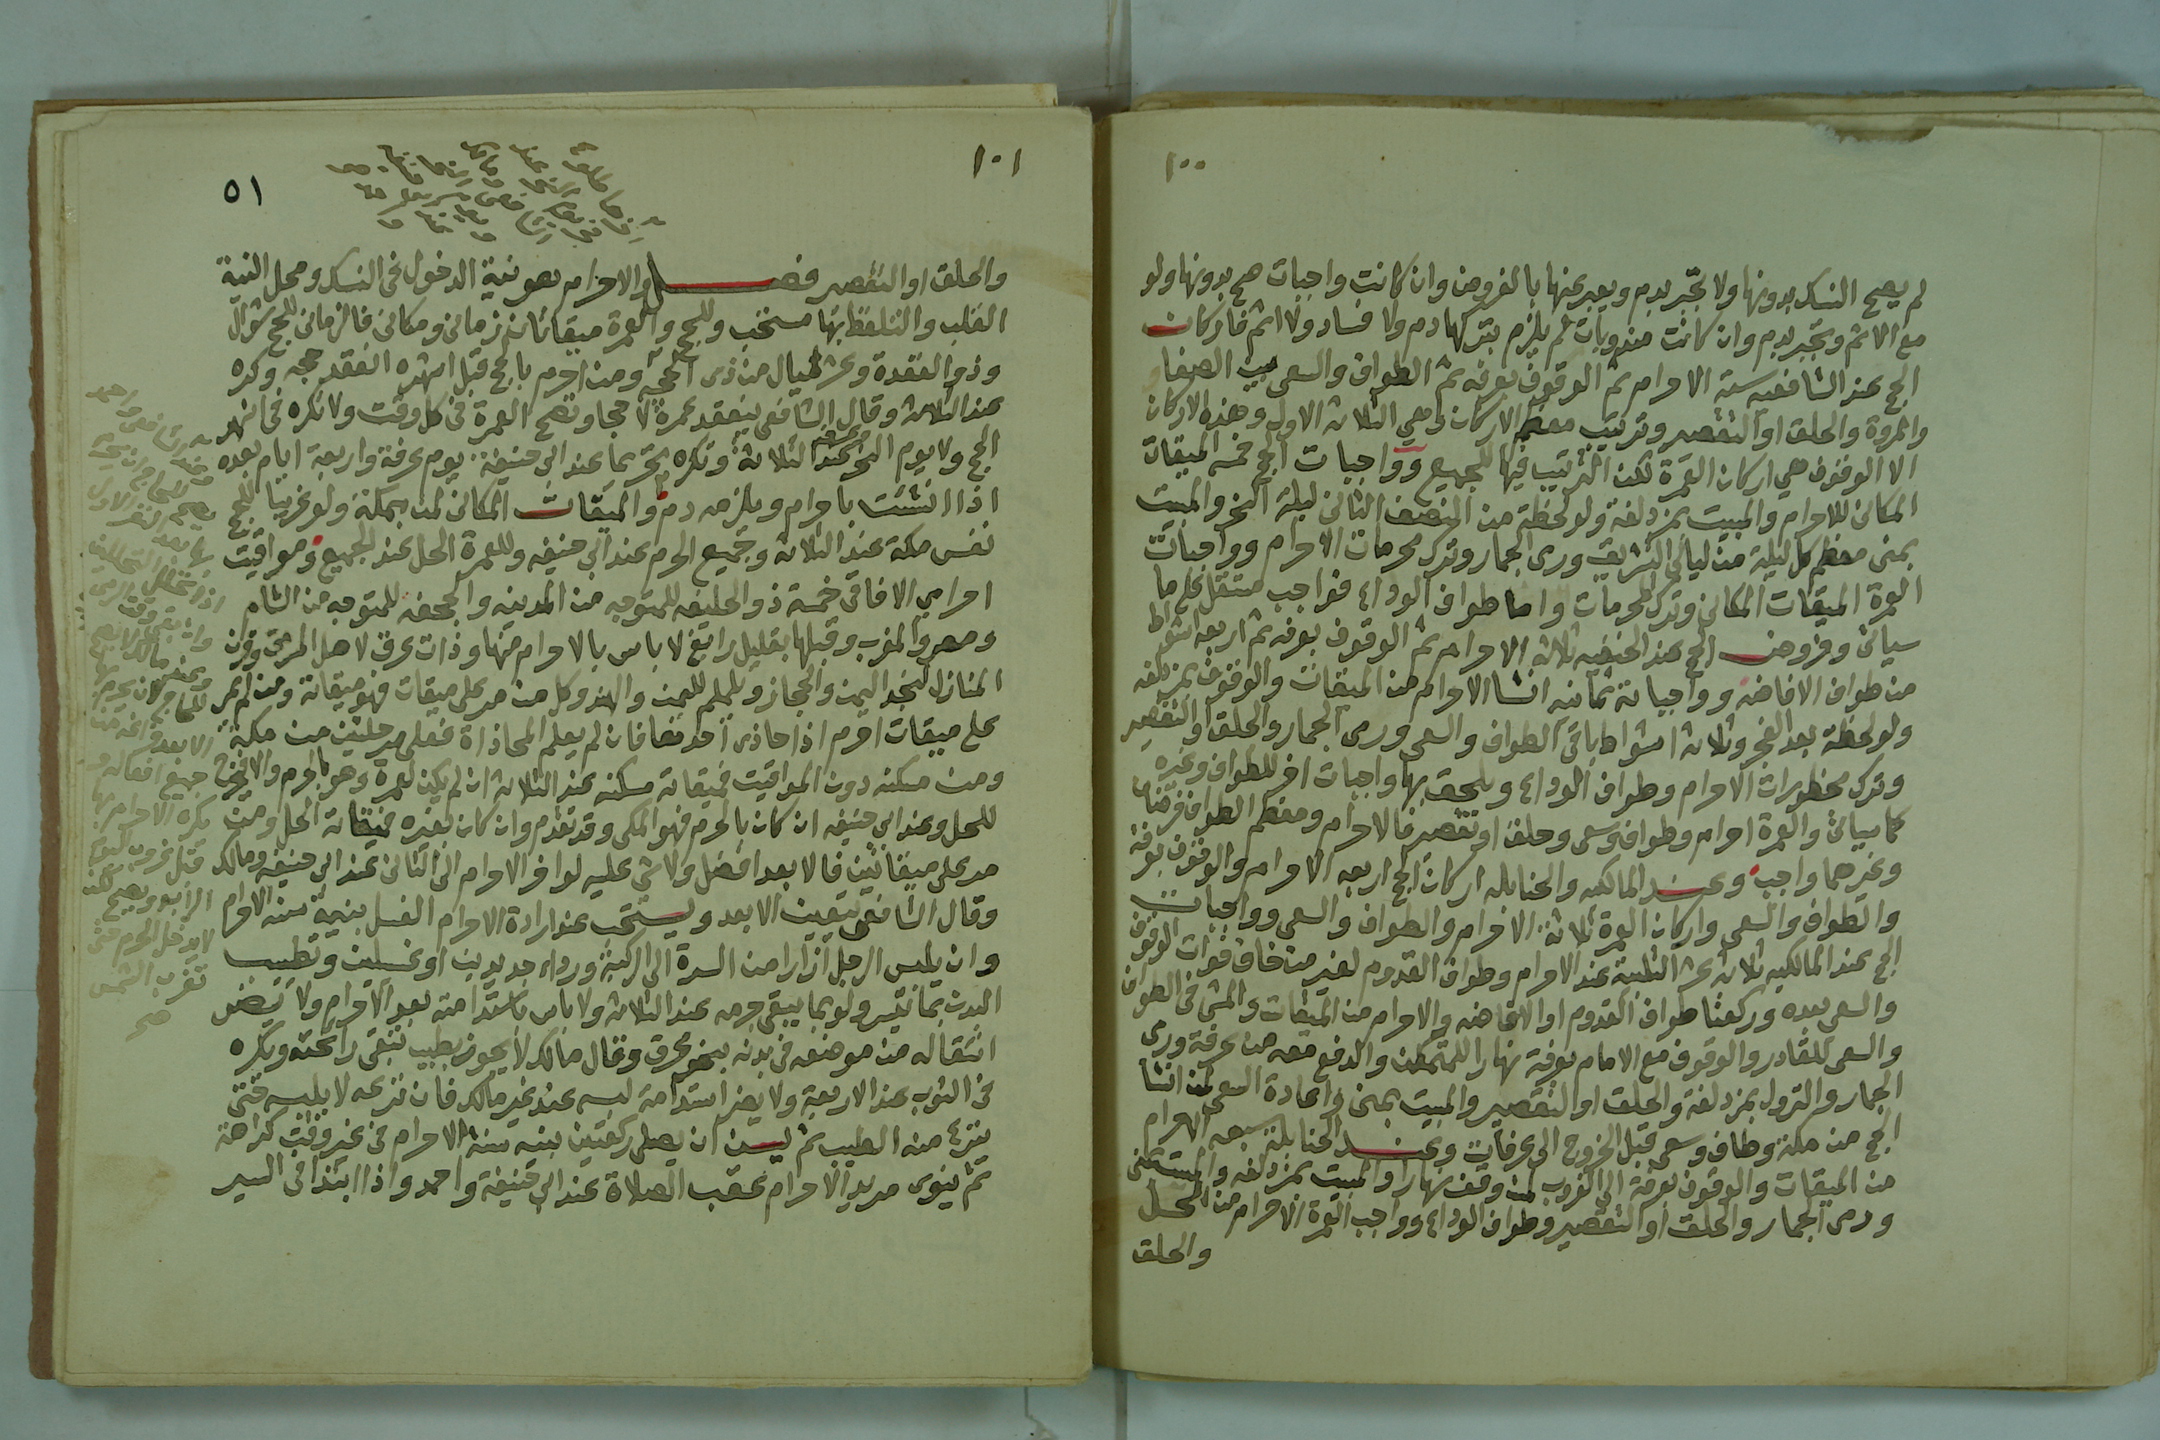 ١٠٠
لم يصح النسك بدونها ولا تجبر بدم ويعبر عنها بالفروض وان كانت واجبات صح بدونها ولو
مع الاثم وتجبر بدم وان كانت مندوبات لم يلزم بتركها دم ولا فساد ولا اثم فاركان
الحج عند الشافعيه ستة الاحرام ثم الوقوف بعرفه ثم الطواف والسعي بين الصفا
والمروة والحلق او التقصير وترتيب معظم الاركان وهي الثلاثة الاول وهذه الاركان
الا الوقوف هي اركان العمرة لكن الترتيب فيها للجميع وواجبات الحج خمسه الميقات
المكاني للاحرام والمبيت بمزدلفة ولو لحظة من النصف الثاني ليلة النحر والمبيت
بمنى معظم كل ليلة من ليالي التشريق ورمي الجمار وترك محرمات الاحرام وواجبات
العمرة الميقات المكاني وترك المحرمات واما طواف الوداع فواجب مستقل على ما
سياتي وفروض الحج عند الحنفيه ثلاثة الاحرام ثم الوقوف بعرفه ثم اربعه اشواط
من طواف الافاضه وواجباته ثمانيه انشا الاحرام من الميقات والوقوف بمزدلفه
ولو لحظة بعد الفجر وثلاثة اشواط باقي الطواف والسعي ورمي الجمار والحلق او التقصير
وترك محظورات الاحرام وطواف الوداع ويلحق بها واجبات اخر للطواف وغيره
كما سياتي والعمرة احرام وطواف وسعي وحلق او تقصير فالاحرام ومعظم الطواف فرضان
وغيرهما واجب وعند المالكيه والحنابله اركان الحج اربعه الاحرام والوقوف بعرفة
والطواف والسعي واركان العمرة ثلاثة الاحرام والطواف والسعي وواجبات
الحج عند المالكيه ثلاثة عشر التلبية عند الاحرام وطواف القدوم لغير من خاف فوات الوقوف
والسعي بعده وركعتا طواف القدوم او الافاضه والاحرام من الميقات والمشي في الطواف
والسعي للقادر والوقوف مع الامام بعرفة نهارا للمتمكن والدفع معه من عرفة ورمي
الجمار والنزول بمزدلفة والحلق او التقصير والمبيت بمنى واعادة السعي لمن انشا
الحج من مكة وطاف وسعي قبل الخروج الى عرفات وعند الحنابلة سبعه الاحرام
من الميقات والوقوف بعرفة الى الغروب لمن وقف نهارا والمبيت بمزدلفه والمبيت بمنى
ورمي الجمار والحلق او التقصير وطواف الوداع وواجب العمرة الاحرام من الحل
والحلق
١٠١
٥١
والحلق او التقصير فصل والاحرام هو نية الدخول في النسك ومحل النية
القلب والتلفظ بها مستحب وللحج والعمرة ميقاتان زماني ومكاني فالزماني للحج شوال
وذو القعدة وعشر ليال من ذي الحجه ومن احرم بالحج قبل اشهره انعقد حجه وكره
عند الثلاثة وقال الشافعي ينعقد عمرة لا حجا وتصح العمرة في كل وقت ولا تكره في اشهر
الحج ولا يوم النحر عند الثلاثة وتكره تحريما عند ابي حنيفة يوم عرفة واربعة ايام بعده
اذا انشئت باحرام ويلزمه دم والميقات المكاني لمن بمكة ولو غريبا للحج
نفس مكة عند الثلاثة وجميع الحرم عند ابي حنيفه وللعمرة الحل عند الجميع ومواقيت
احرامي الافاقي خمسة ذو الحليفه للمتوجه من المدينه والجحفه للمتوجه من الشام
ومصر والمغرب وقبلها بقليل رابغ لا باس بالاحرام منها وذات عرق لاهل المشرق وقرن
المنازل لنجد اليمن والحجاز ويلملم لليمن والهند وكل من مر على ميقات فهو ميقاته ومن لم يمر
على ميقات احرم اذا حاذى احدها فان لم يعلم المحاذاة فعلى مرحلتين من مكة
ومن مسكنه دون المواقيت فميقاته مسكنه عند الثلاثة ان لم يكن لعمرة وهو بالحرم والا فيخرج
للحل وعند ابي حنيفه ان كان بالحرم فهو المكي وقد تقدم وان كان بغيره فميقاته الحل ومن
مر على ميقاتين فالابعد افضل ولا شي عليه لو اخر الاحرام الى الثاني عند ابي حنيفه ومالك
وقال الشافعي يتعين الابعد ويستحب عند ارادة الاحرام الغسل بنية سنة الاحرام
وان يلبس الرجل ازارا من السرة الى الركبة ورداء جديدين او غسلين وتطيب
البدن بما تيسر ولو بما يبقى جرمه عند الثلاثة ولا باس باستدامته بعد الاحرام ولا يضر
انتقاله من موضعه في بدنه بنحو عرق وقال مالك لا يجوز بطيب تبقى رائحته ويكره
في الثوب عند الاربعة ولا يضر استدامة لبسه عند غير مالك فان نزعه لا يلبسه حتى
ينزع منه الطيب ثم يسن ان يصلي ركعتين بنيه سنة الاحرام في غير وقت كراهة
ثم ينوي مريد الاحرام عقب الصلاة عند ابي حنيفة واحمد واذا ابتدا في السير